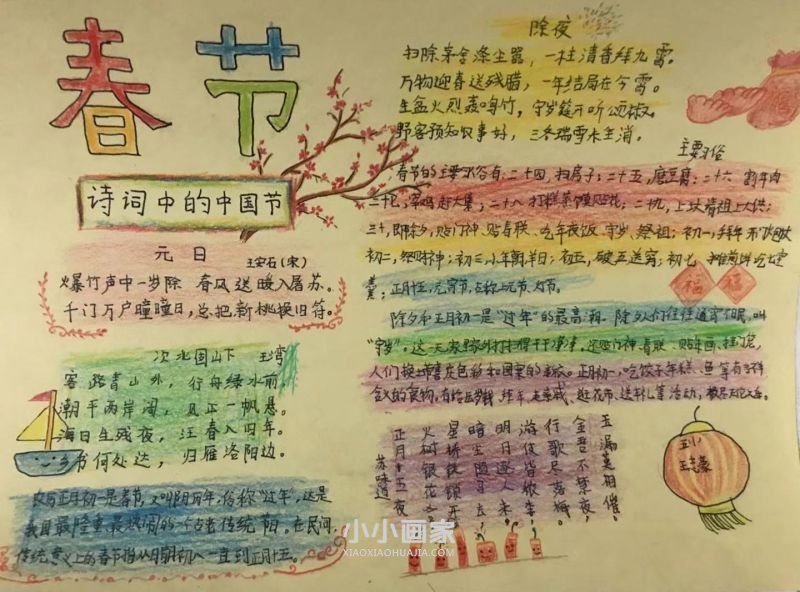 春节
诗词中的中国节
元日
王安石(宋)
爆竹声中一岁除 春风送暖入屠苏。
千门万户曈曈日，总把新桃换旧符。
次北固山下 王湾
客路青山外，行舟绿水前。
潮平两岸阔，风正一帆悬。
海日生残夜，江春入旧年。
乡书何处达，归雁洛阳边。
农历正月初一是春节，又叫阴历年，俗称“过年”，这是
我国最隆重、最热闹的一个古老传统节日。在民间，
传统意义上的春节指从腊月初八一直到正月十五。
除夜
扫除茅舍涤尘嚣，一柱清香拜九霄。
万物迎春送残腊，一年结局在今宵。
生盆火烈轰鸣竹，守岁筵开听颂椒。
野客预知农事好，三冬瑞雪未全消。
主要习俗
春节的主要习俗有:二十四，扫房子;二十五，磨豆腐;二十六 割年肉
二十七，宰鸡赶大集;二十八 打糕蒸馍贴花;二十九，上坟请祖上大供;
三十，即除夕，贴门神、贴春联、吃年夜饭、守岁、祭祖;初一，拜年
初二，祭财神;初三，小年朝，羊日;初五，破五送穷;初七
正月十五，元宵节，古称上元节、灯节。
福 福
除夕和正月初一是“过年”的最高潮。除夕人们往往通宵不眠，叫
“守岁”。这一天家里家外打扫得干干净净，还贴门神、春联、贴年画、挂门笼，
人们换上带喜庆色彩和图案的新衣。正月初一，吃饺子、年糕、鱼等有吉祥
含义的食物，有给压岁钱、拜年、走亲戚、逛花市、送礼等活动，
玉漏莫相催。
金吾不禁夜，
行歌尽落梅。
游伎皆秾李，
明月逐人来。
暗尘随马去，
星桥铁锁开。
火树银花合，
苏味道
正月十五夜
五(1)
小小画家
XIAOXIAOHUAJIA.COM